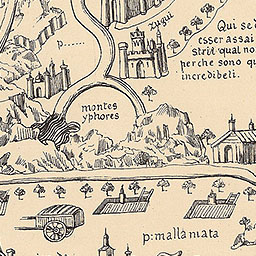 zugui
Qui se
esser assai
strit qual no
perche sono q
incredibeli.
p......
montes
yphores
p: mallamata